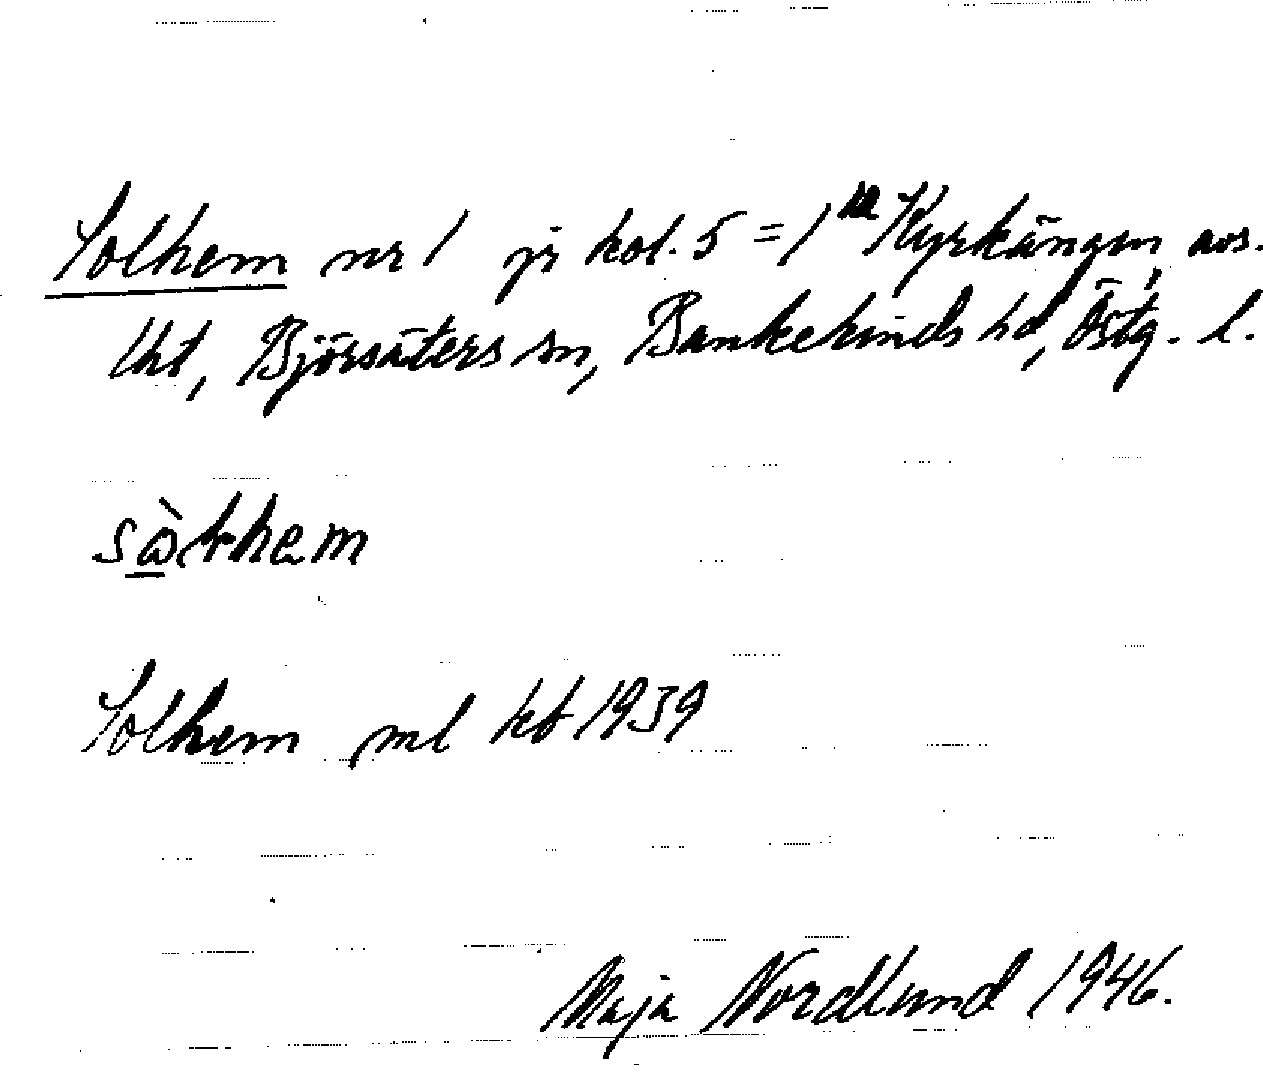 Solhem nr 1 jr kol. 5 = 1 m Kyrkängen avs.
lht, Björsäters sn, Bankekinds hd, Östg. l.
sòlhem
Solhem ml kb 1939
Maja Nordlund 1946.